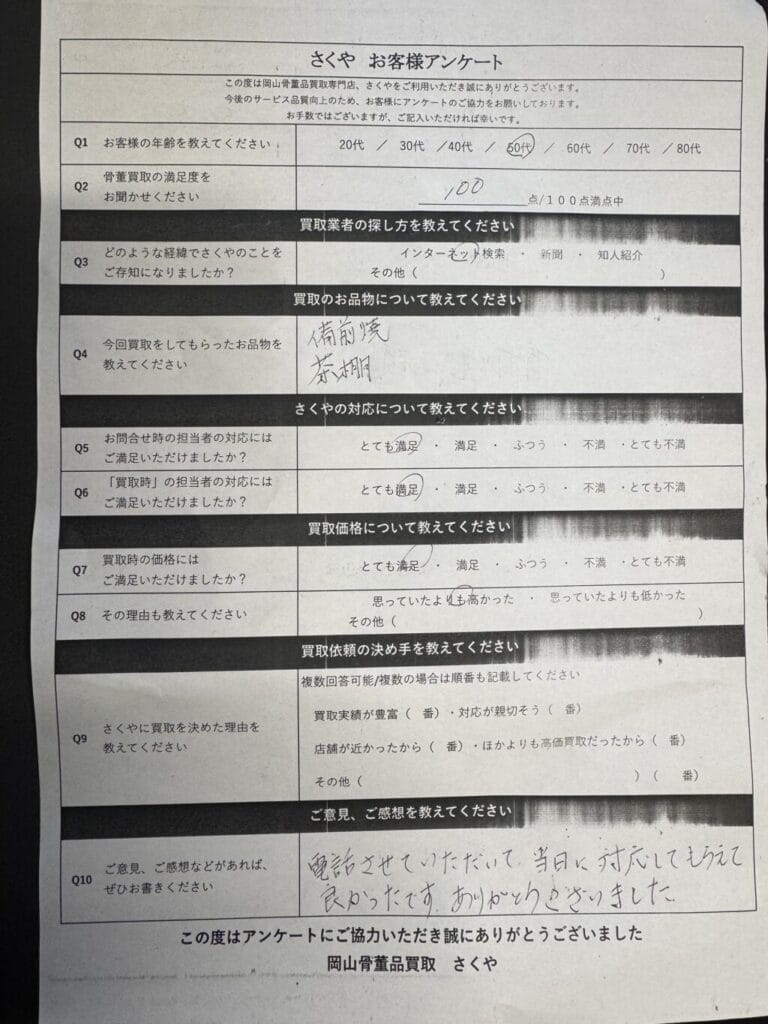 さくや　お客様アンケート
この度は岡山骨董品買取専門店、さくやをご利用いただき誠にありがとうございます。
今後のサービス品質向上のため、お客様にアンケートのご協力をお願いしております。
お手数ではございますが、ご記入いただければ幸いです。
Q1 お客様の年齢を教えてください 20代 ／ 30代 ／40代 ／ 50代 ／ 60代 ／ 70代 ／80代
Q2 骨董買取の満足度を
お聞かせください
100 点/１００点満点中
買取業者の探し方を教えてください
Q3 どのような経緯でさくやのことを
ご存知になりましたか？
インターネット検索 ・ 新聞 ・ 知人紹介
その他（ ）
買取のお品物について教えてください
Q4 今回買取をしてもらったお品物を
教えてください
備前焼
茶棚
さくやの対応について教えてください
Q5 お問合せ時の担当者の対応には
ご満足いただけましたか？
とても満足 ・ 満足 ・ ふつう ・ 不満 ・とても不満
Q6 「買取時」の担当者の対応には
ご満足いただけましたか？
とても満足 ・ 満足 ・ ふつう ・ 不満 ・とても不満
買取価格について教えてください
Q7 買取時の価格には
ご満足いただけましたか？
とても満足 ・ 満足 ・ ふつう ・ 不満 ・とても不満
Q8 その理由も教えてください
思っていたよりも高かった ・ 思っていたよりも低かった
その他（ ）
買取依頼の決め手を教えてください
Q9 さくやに買取を決めた理由を
教えてください
複数回答可能/複数の場合は順番も記載してください
買取実績が豊富（ 番）・対応が親切そう（ 番）
店舗が近かったから（ 番）・ほかよりも高価買取だったから（ 番）
その他（ ）（ 番）
ご意見、ご感想を教えてください
Q10 ご意見、ご感想などがあれば、
ぜひお書きください
電話させていただいて、当日に対応してもらえて
良かったです。ありがとうございました。
この度はアンケートにご協力いただき誠にありがとうございました
岡山骨董品買取　さくや